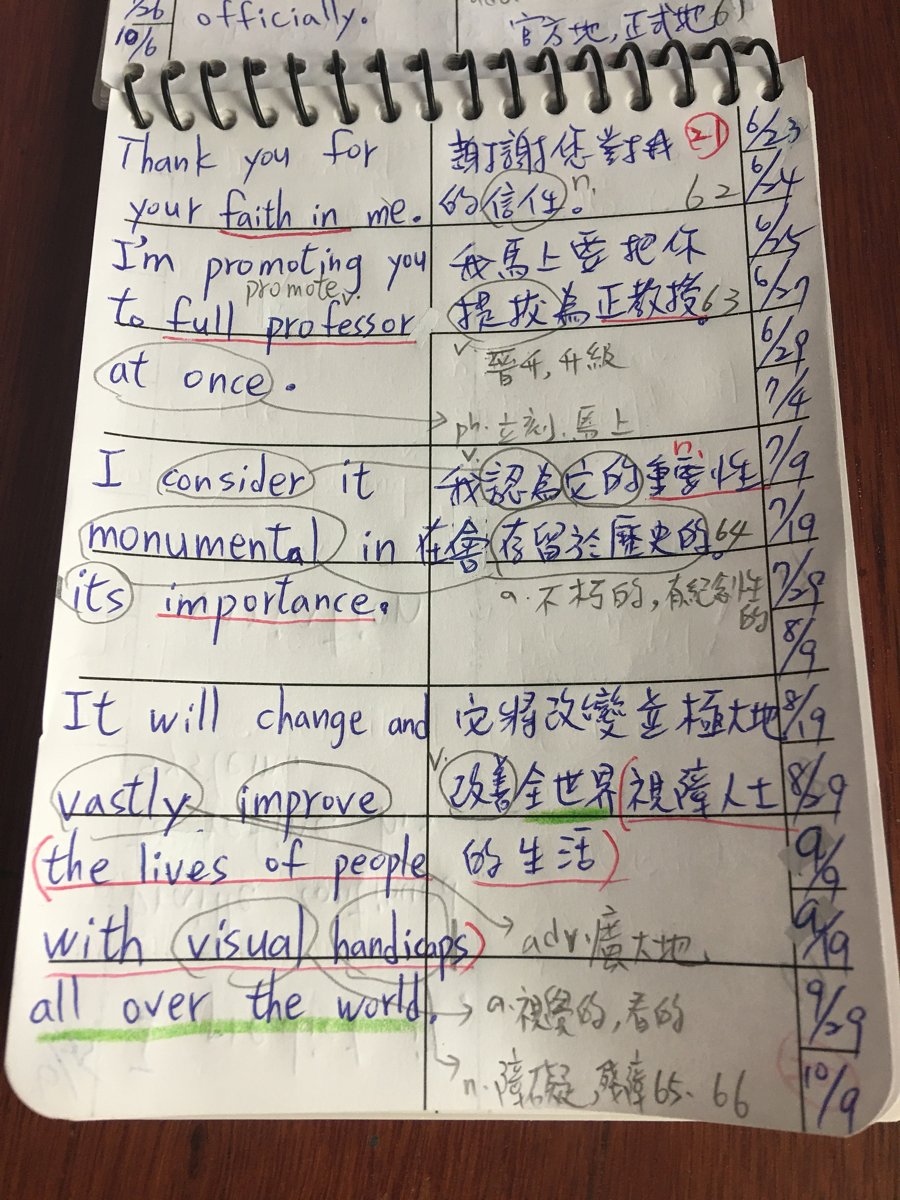 /26
10/6
officially.
官方地,正式地61
Thank you for
your faith in me.
謝謝您對我 21
的信任。 n. 62
I'm promoting you
promote v.
to full professor
at once.
我馬上要把你
提拔為正教授。63
v. 晉升,升級
ph. 立刻.馬上
I consider it
monumental in
its importance.
v. n.
我認為它的重要性
在會存留於歷史的。64
a. 不朽的,有紀念性
的
It will change and
vastly improve
(the lives of people
with visual handicaps)
all over the world.
它將改變並極大地
v.
改善全世界(視障人士
的生活)
adv. 廣大地
a. 視覺的,看的
n. 障礙,殘障65. 66
6/23
6/24
6/25
6/27
6/29
7/4
7/9
7/19
7/29
8/9
8/19
8/29
9/9
9/19
9/29
10/9